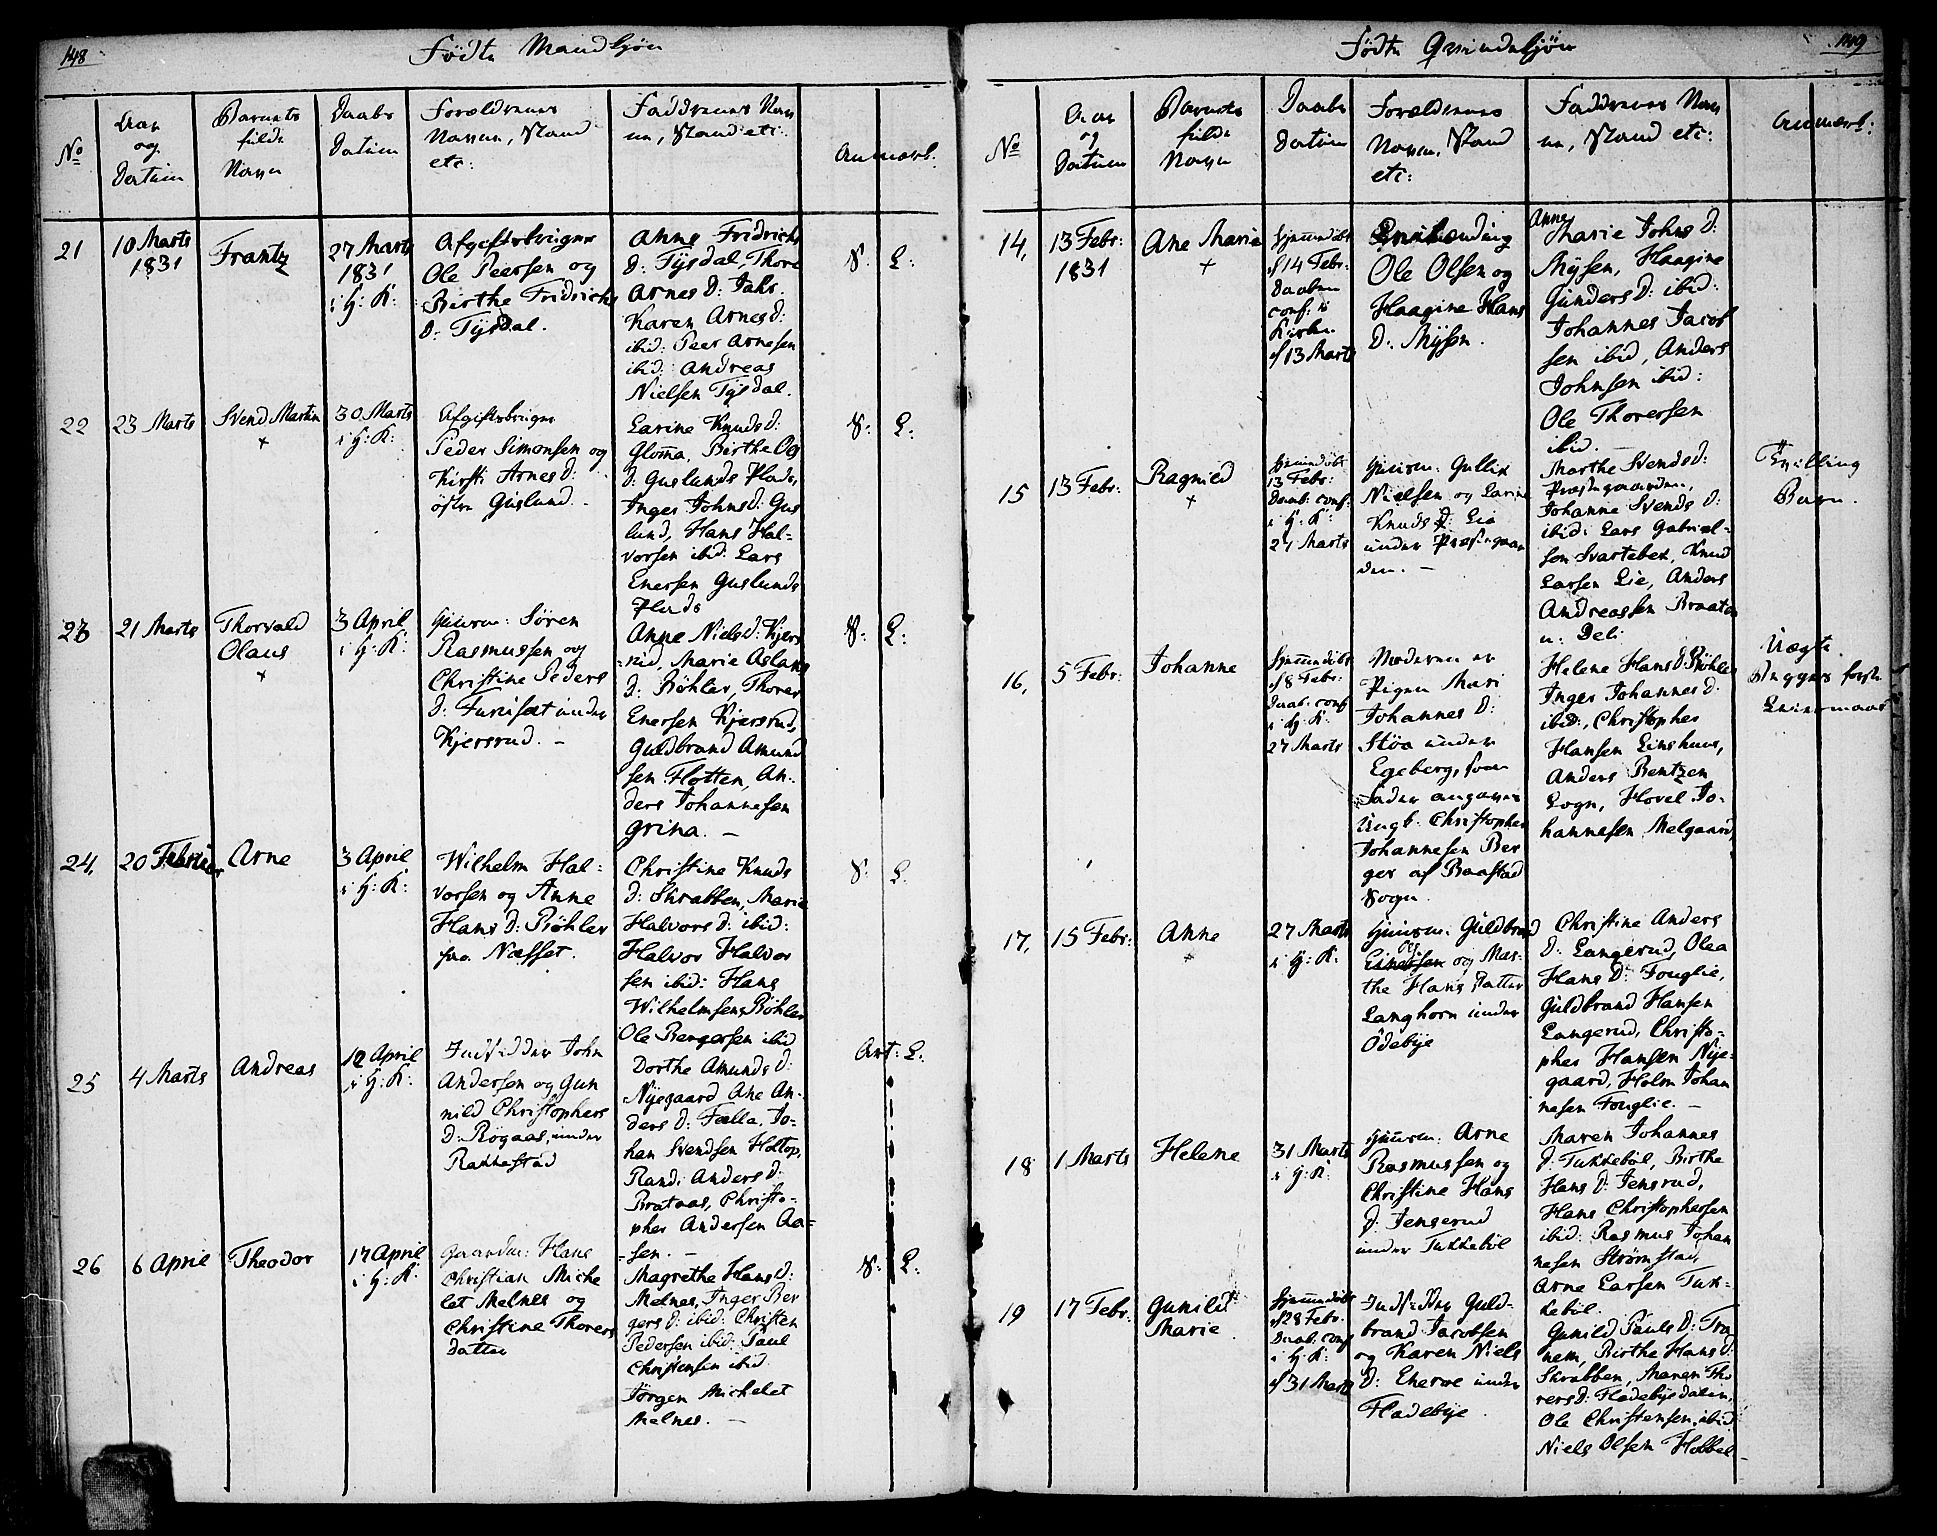 148
Födte Mandkjön
No
Aar
og
Datum
Barnets
fulde
Navn
Daabs
Datum
Forældrenes
Navne, Stand
etc:
Faddernes Nav
ne, Stand etc:
Anmærk:
21
10 Marts
1831
Frantz
27 Marts
1831
i H: K:
Afgiftsbruger
Ole Peersen og
Birthe Fridrichs
D: Tÿsdal.
Anne Fridrichs
D: Tÿsdal, Thore
Arnes D: Jahr.
Karen Arnes D:
ibid: Peer Arnesen
ibid: Andreas
Nielsen Tÿsdal.
S: L:
22
23 Marts
Svend Martin
+
30 Marts
i H: K:
Afgiftsbruger
Peder Simonsen og
Kirsti Arnes D:
östre Guslund.
Larine Knuds D:
Gloma, Birthe Oles
D: Guslunds Plads,
Inger Johns D: Gus
lund, Hans Hal-
vorsen ibid: Lars
Enersen Guslunds
Plads
S: L:
23
21 Marts
Thorvald
Olaus
+
3 April
i H: K:
Huusm: Sören
Rasmussen og
Christine Peders
D: Furuset under
Kjersrud. -
Anne Niels D: Kjers
rud, Marie Aslaks
D: Böhler, Thorer
Enersen Kjersrud,
Guldbrand Amund
sen Flotten, An-
ders Johannesen
Grina. -
S: L:
24,
20 Februar
Arne
3 April
i H: K:
Wilhelm Hal-
vorsen og Anne
Hans D: Böhler
fra Næsset.
Christine Knuds
D: Skrabben, Marie
Halvors D: ibid:
Halvor Halvor
sen ibid: Hans
Wilhelmsen Böhler
Ole Bergersen ibid
S: L:
25
4 Marts
Andreas
10 April
i H: K:
Indsidder John
Andersen og Gun
nild Christophers
D: Rögaas, under
Rakkestad
Dorthe Amunds D:
Nÿegaard Ane An-
ders D: Fælla, Jo-
han Svendsen Holtop,
Randi Anders D:
Brataas, Christo-
pher Andersen Aa-
sen. -
Art: L:
26
6 April
Theodor
17 April
i H: K:
Gaardm: Hans
Christian Miche
let Melnes og
Christine Thorers
datter
Magrethe Hans D:
Melnes, Inger Ber
gers D: ibid: Christen
Pedersen ibid: Paul
Christensen ibid
Jörgen Michelet
Melnes. -
S: L:
149
Födte Qvindekjön
No
Aar
og
Datum
Barnets
fulde
Navn
Daabs
Datum
Forældrenes
Navne, Stand
etc:
Faddernes Nav
ne, Stand etc:
Anmærk:
14,
13 Febr:
1831
Ane Marie
+
Hjemmedöbt
d 14 Febr:
Daaben
conf: i
Kirken
d 13 Marts
Ole Olsen og
Haagine Hans
D: Mÿsen.
Anne
Marie Johns D:
Mÿsen, Haagine
Gunders D: ibid:
Johannes Jacob
sen ibid, Anders
Johnsen ibid:
Ole Thorersen
ibid. -
15
13 Febr:
Ragnild
+
Hjemmedöbt
13 Febr:
Daab. conf.
i H: K:
27 Marts
Huusm: Gullik
Nielsen og Larine
Knuds D: Lie
under Præstegaar
den. -
Marthe Svends D:
Præstegaarden,
Johanne Svends D:
ibid: Lars Gabriel-
sen Svartebek, Knud
Larsen Lie, Anders
Andreassen Braaten
u: Deli
Tvilling
Barn.
16,
5 Febr:
Johanne
Hjemmedöbt
d 8 Febr:
Daab. conf
i H: K:
27 Marts
Moderen er
Pigen Mari
Johannes D:
Stöa under
Egeberg, som
Fader angaves
Ungk. Christopher
Johannesen Ber
ger af Baastad
Sogn.
Helene Hans D: Böhler
Inger Johannes D:
ibid:, Christopher
Hansen Einshuus,
Anders Bentzen
Sogn, Hovel Jo-
hannesen Melgaard
Uægte
Begges förste
Leiermaal
17,
15 Febr:
Anne
+
27 Marts
i H: K:
Huusm: Guldbrand
og Mar-
the Hans Datter
Langhorn under
Ödebÿe
Christine Anders
D: Langerud, Olea
Hans D: Fouglie,
Guldbrand Hansen
Langerud, Christo-
pher Hansen Nÿe-
gaard, Holm Johan
nesen Fouglie. -
18
1 Marts
Helene
31 Marts
i H: K:
Huusm: Arne
Rasmussen og
Christine Hans
D: Jenserud
under Tukkeböl
Maren Johannes
D: Tukkeböl, Birthe
Hans D: Jensrud,
Hans Christophersen
ibid: Rasmus Johan
nesen Strömstad,
Arne Larsen Tuk-
keböl.
19
17 Febr:
Gunild
Marie
Hjemmedöbt
d 28 Febr.
Daab. conf
i H: K:
d 31 Marts
Indsidder Guld-
brand Jacobsen
og Karen Niels
D: Eneroe under
Fladebÿe
Gunild Pauls D: Tra
nem, Birthe Hans D:
Skrabben, Maren Tho
rers D: Fladebÿe
Ole Christensen, ibid
Niels Olsen Hobbel